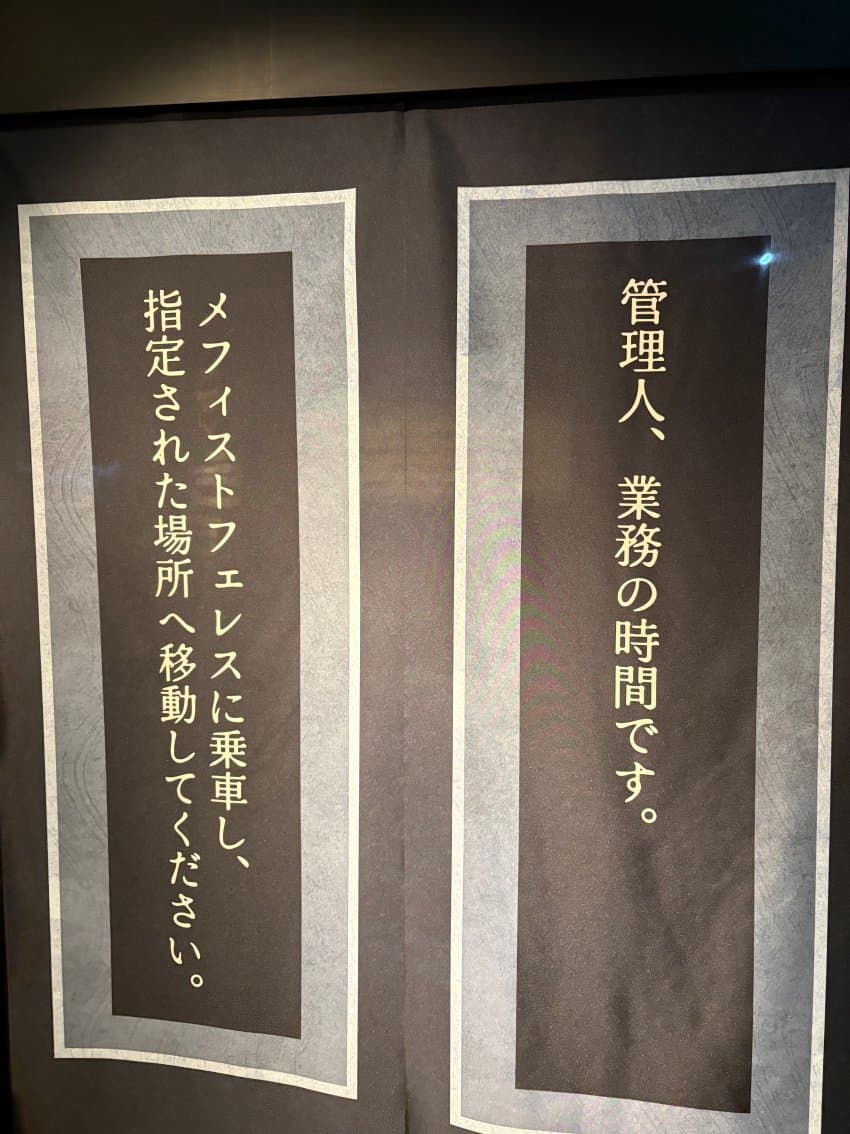 管理人、業務の時間です。
メフィストフェレスに乗車し、
指定された場所へ移動してください。